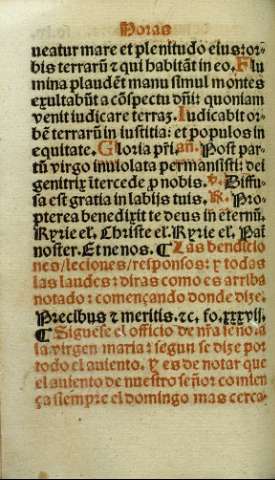 Horas
ueatur mare et plenitudo eius: or⸗
bis terrarū ⁊ qui habitāt in eo. Flu
mina plaudēt manu simul montes
exultabūt a cōspectu dñi: quoniam
venit iudicare terrā. Iudicabit or⸗
bē terrarū in iustitia: et populos in
equitate. Gloria pr̄i. an̄. Post par
tū virgo inuiolata permansisti: dei
genitrix ītercede ꝓ nobis. ℣. Diffu⸗
sa est gratia in labijs tuis. ℟. Pro⸗
pterea benedixit te deus in eternū.
Kyrie el'. Christe el'. Kyrie el'. Pat
noster. Et ne nos. ¶ Las bendicio
nes/leciones/responsos: y todas
las laudes: diras como es arriba
notado: començando donde dize.
Precibus ⁊ meritis. ⁊c. fo. xxxvij.
¶ Siguese el officio de nr̄a señora
la virgen maria: segun se dize por
todo el auiento. Y es de notar que
el auiento de nuestro señor comien
ça siempre el domingo mas cerca⸗